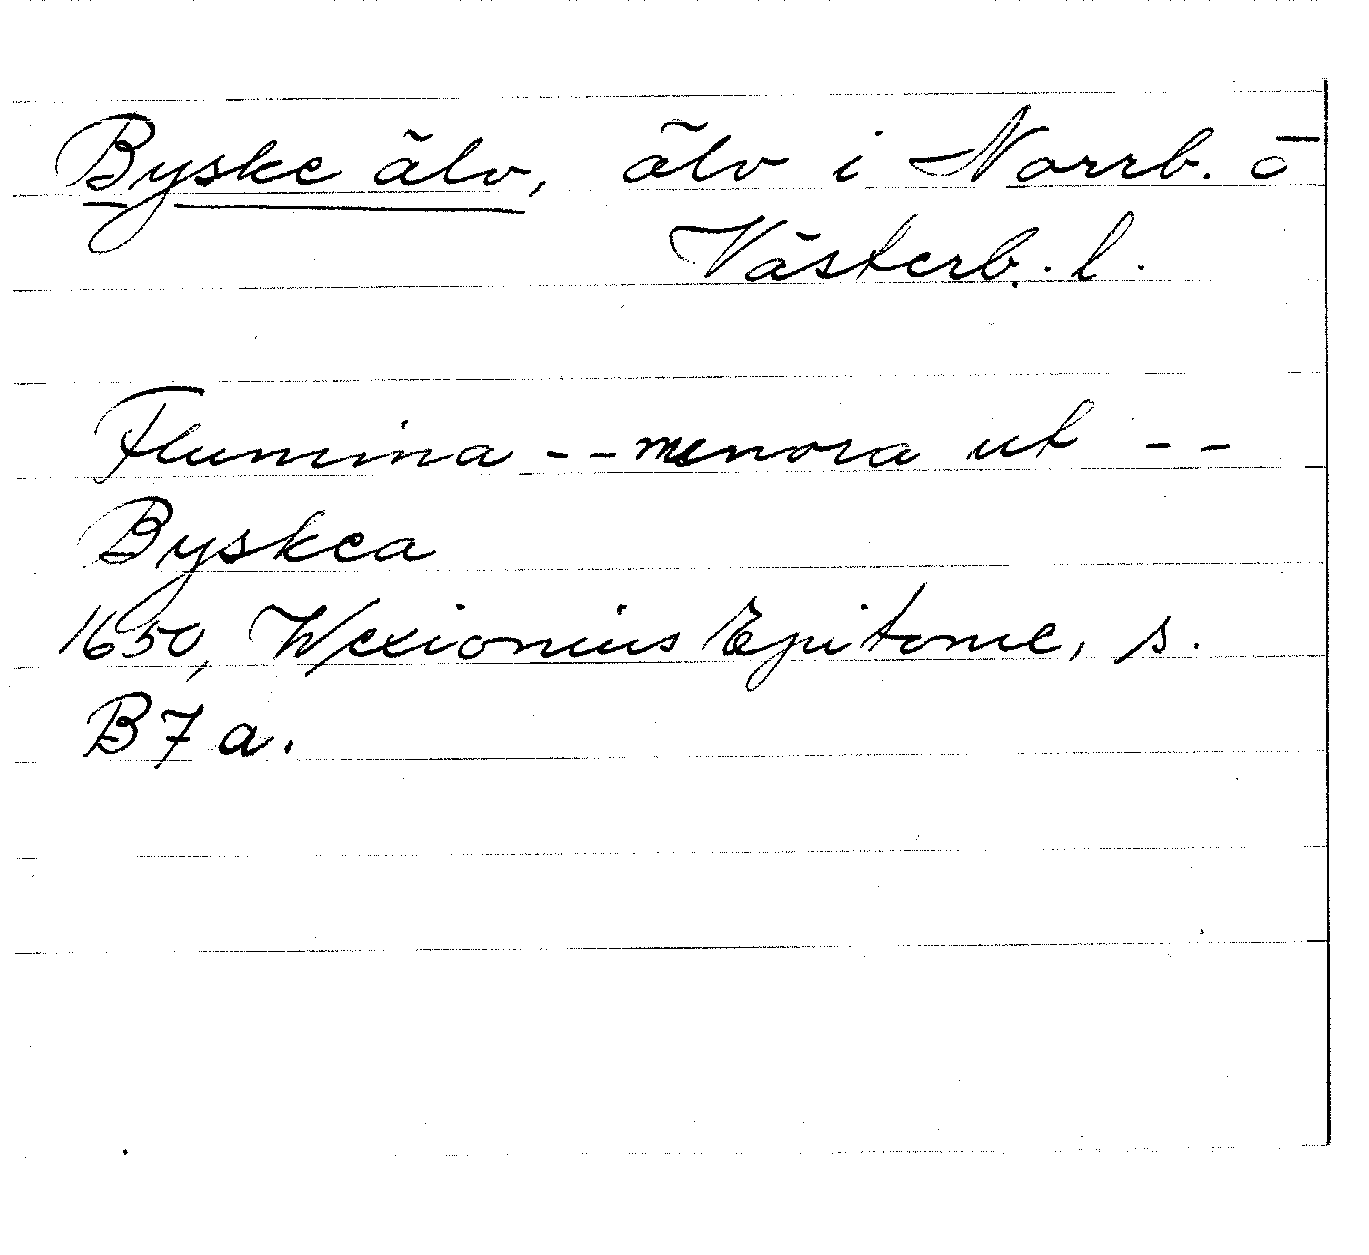 Byske älv, älv i Norrb. o
Västerb. l.
Flumina -- menora ut --
Byskea
1650, Wexionius Epitome, s.
B7a.